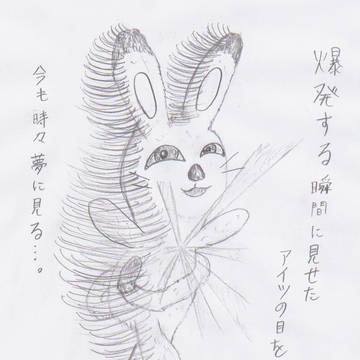 爆発する瞬間に見せた
アイツの目を
今も時々夢に見る…。